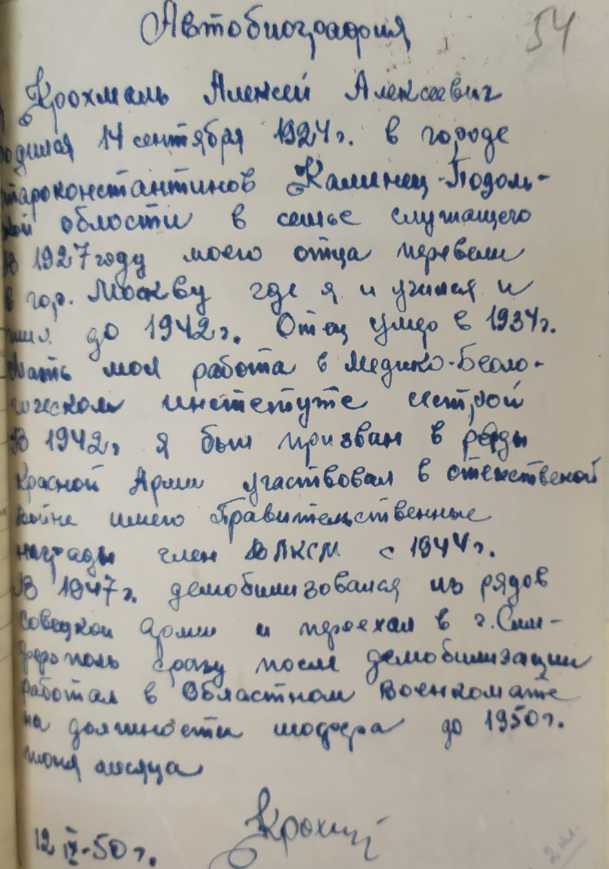 Автобиография 54
Крохмаль Алексей Алексеевич
одился 14 сентября 1924г. в городе
тароконстантинов Каменец-Подоль-
кой области в семье служащего
В 1927 году моего отца перевели
в гор. Москву где я и учился и
жил до 1942г. Отец умер в 1934г.
Мать моя работа в Медико-Беоло-
гическом инстетуте сестрой
В 1942г я был призван в ряды
Красной Армии участвовал в отечственой
войне имего Правительственные
награды член ВЛКСМ с 1944г.
В 1947г. демобилизовался из рядов
Советской армии и переехал в г. Сим-
ферополь сразу после демобилизации
работал в Областном Военкомате
на должности шофера до 1950г.
июня месяца
12 IX-50г.
2 кл.